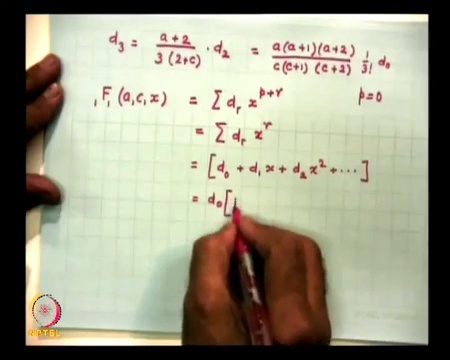 d₃ = (a+2)/(3(2+c)) · d₂ = (a(a+1)(a+2))/(c(c+1)(c+2)) 1/3! d₀
₁F₁(a,c,x) = Σ dᵣ x^(p+r) p=0
= Σ dᵣ x^r
= [d₀ + d₁x + d₂x² + ···]
= d₀[1
NPTEL